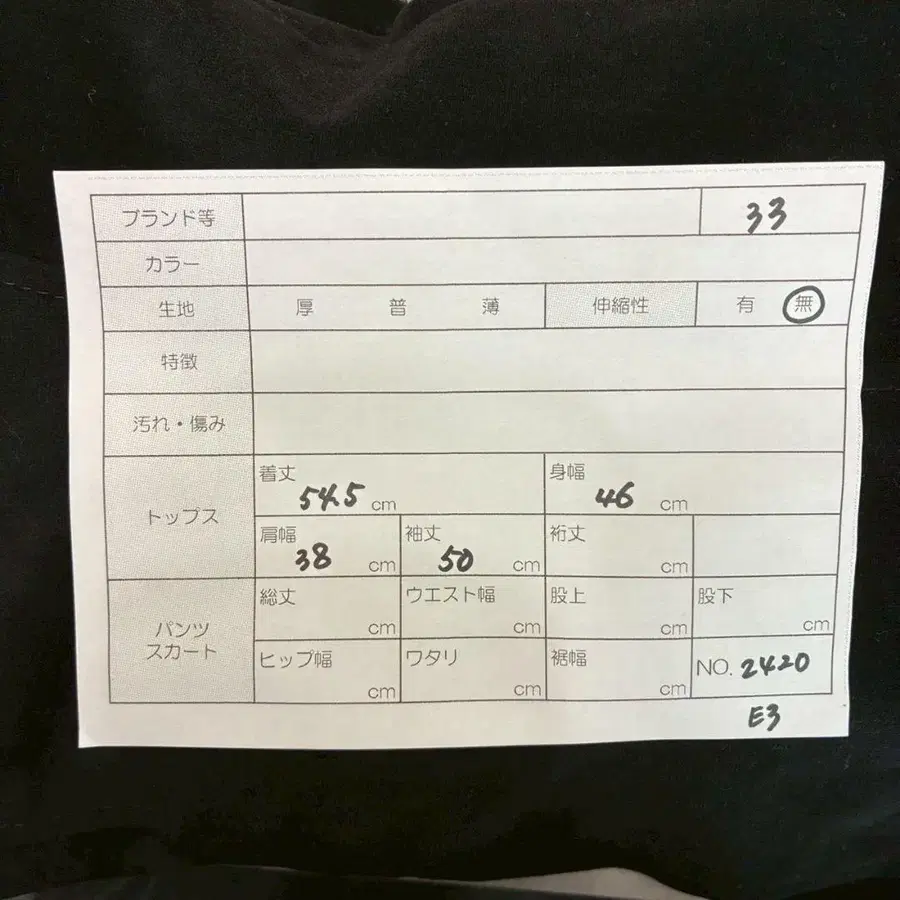 ブランド等 33
カラー
生地 厚 普 薄 伸縮性 有 無
特徴
汚れ・傷み
トップス
着丈 54.5 cm 身幅 46 cm
肩幅 38 cm 袖丈 50 cm 裄丈 cm
パンツ
スカート
総丈 cm ウエスト幅 cm 股上 cm 股下 cm
ヒップ幅 cm ワタリ cm 裾幅 cm NO. 2420
E3